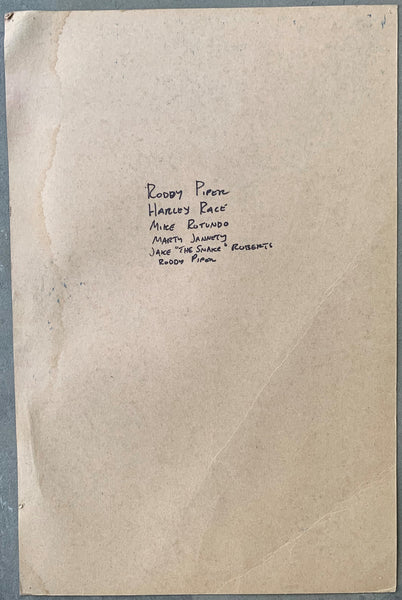 Roddy Piper
Harley Race
Mike Rotundo
Marty Jannety
Jake "The Snake" Roberts
Roddy Piper